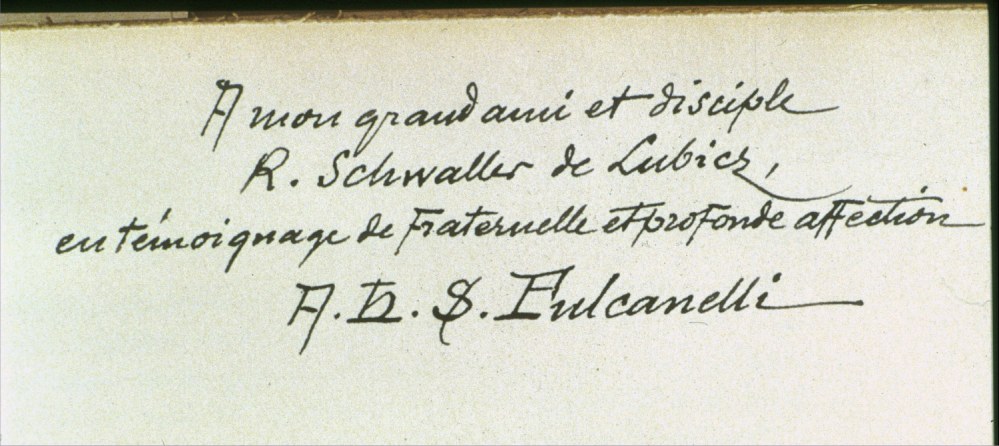 A mon grand ami et disciple
R. Schwaller de Lubicz,
en témoignage de fraternelle et profonde affection
A. H. S. Fulcanelli